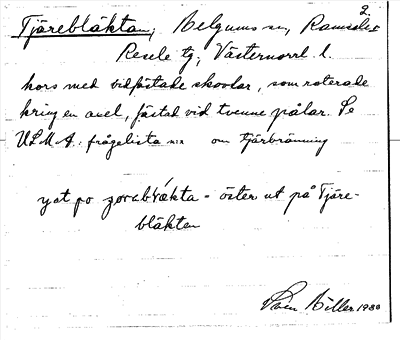 2.
Tjärebläktan, Helgums sn, Ramsele o
Resele tg, Västernorrl. l.
kors med vidfästade skovlar, som roterade
kring en axel, fästad vid tvenne pålar. Se
ULMA:s frågelista om tjärbränning
öster ut på Tjäre-
bläkten
1930